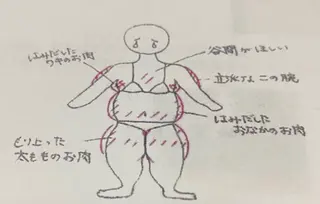 谷間がほしい
はみだした
ワキのお肉
立派な二の腕
はみだした
おなかのお肉
もり上った
太もものお肉